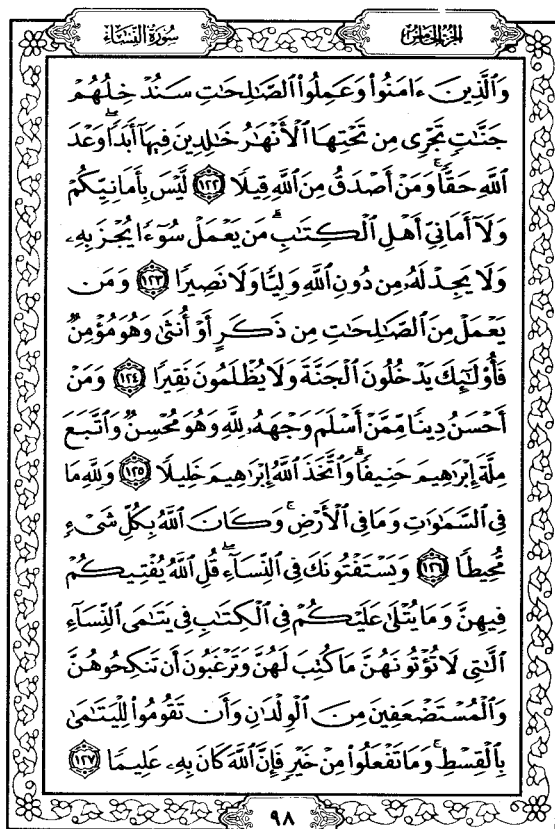 الجزء الخامس سورة النساء
وَالَّذِينَ ءَامَنُوا۟ وَعَمِلُوا۟ الصَّـٰلِحَـٰتِ سَنُدْخِلُهُمْ
جَنَّـٰتٍ تَجْرِى مِن تَحْتِهَا ٱلْأَنْهَـٰرُ خَـٰلِدِينَ فِيهَآ أَبَدًا ۖ وَعْدَ
ٱللَّهِ حَقًّا ۚ وَمَنْ أَصْدَقُ مِنَ ٱللَّهِ قِيلًا ١٢٢ لَّيْسَ بِأَمَانِيِّكُمْ
وَلَآ أَمَانِىِّ أَهْلِ ٱلْكِتَـٰبِ ۗ مَن يَعْمَلْ سُوٓءًا يُجْزَ بِهِۦ
وَلَا يَجِدْ لَهُۥ مِن دُونِ ٱللَّهِ وَلِيًّا وَلَا نَصِيرًا ١٢٣ وَمَن
يَعْمَلْ مِنَ ٱلصَّـٰلِحَـٰتِ مِن ذَكَرٍ أَوْ أُنثَىٰ وَهُوَ مُؤْمِنٌ
فَأُو۟لَـٰٓئِكَ يَدْخُلُونَ ٱلْجَنَّةَ وَلَا يُظْلَمُونَ نَقِيرًا ١٢٤ وَمَنْ
أَحْسَنُ دِينًا مِّمَّنْ أَسْلَمَ وَجْهَهُۥ لِلَّهِ وَهُوَ مُحْسِنٌ وَٱتَّبَعَ
مِلَّةَ إِبْرَٰهِيمَ حَنِيفًا ۗ وَٱتَّخَذَ ٱللَّهُ إِبْرَٰهِيمَ خَلِيلًا ١٢٥ وَلِلَّهِ مَا
فِى ٱلسَّمَـٰوَٰتِ وَمَا فِى ٱلْأَرْضِ ۚ وَكَانَ ٱللَّهُ بِكُلِّ شَىْءٍ
مُّحِيطًا ١٢٦ وَيَسْتَفْتُونَكَ فِى ٱلنِّسَآءِ ۖ قُلِ ٱللَّهُ يُفْتِيكُمْ
فِيهِنَّ وَمَا يُتْلَىٰ عَلَيْكُمْ فِى ٱلْكِتَـٰبِ فِى يَتَـٰمَى ٱلنِّسَآءِ
ٱلَّـٰتِى لَا تُؤْتُونَهُنَّ مَا كُتِبَ لَهُنَّ وَتَرْغَبُونَ أَن تَنكِحُوهُنَّ
وَٱلْمُسْتَضْعَفِينَ مِنَ ٱلْوِلْدَٰنِ وَأَن تَقُومُوا۟ لِلْيَتَـٰمَىٰ
بِٱلْقِسْطِ ۚ وَمَا تَفْعَلُوا۟ مِنْ خَيْرٍ فَإِنَّ ٱللَّهَ كَانَ بِهِۦ عَلِيمًا ١٢٧
٩٨